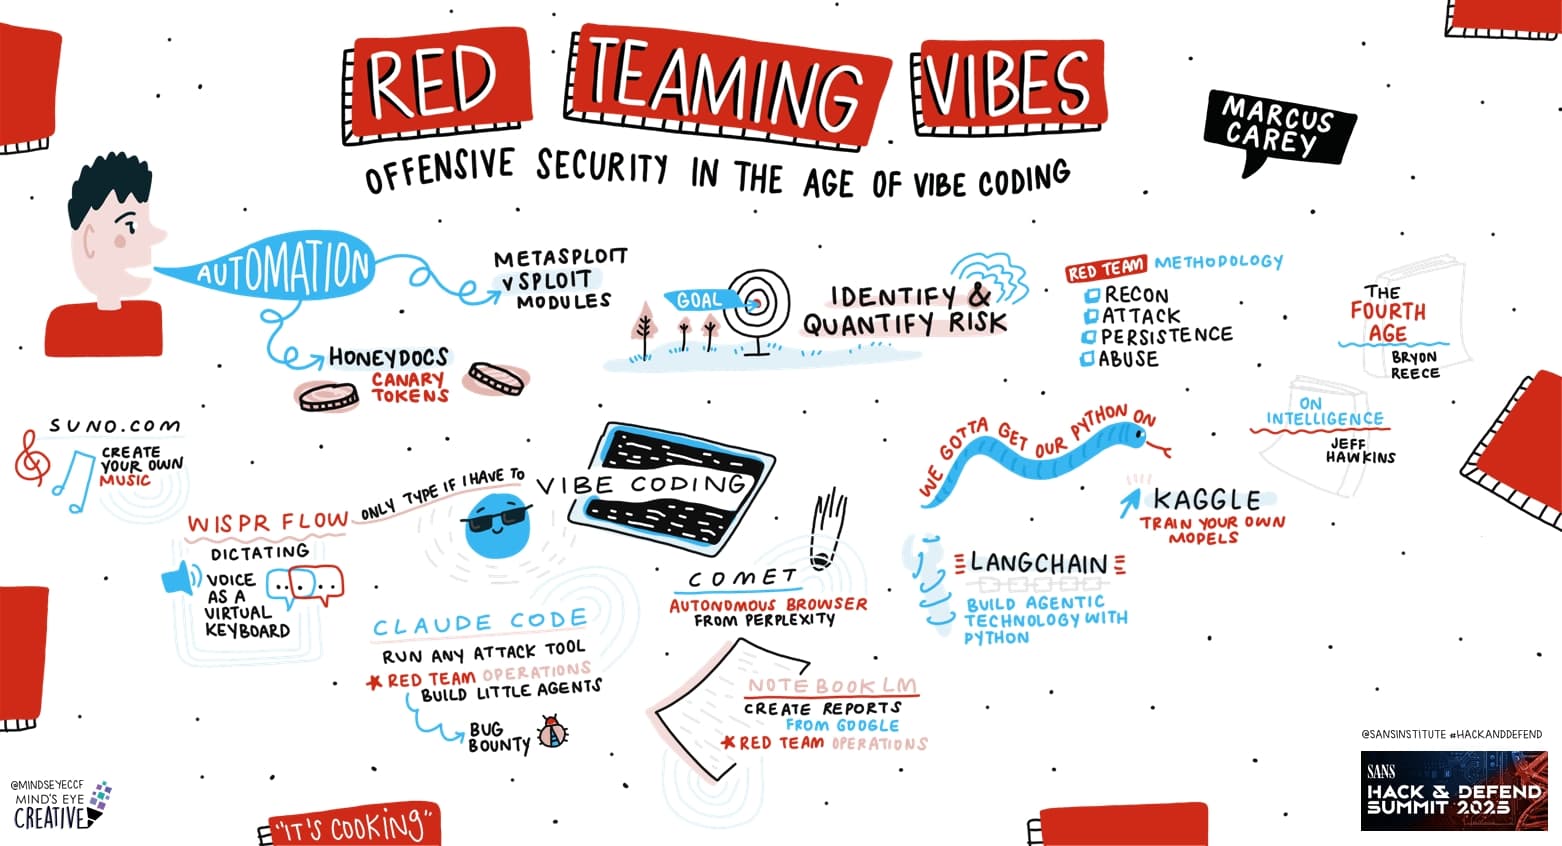 RED TEAMING VIBES
OFFENSIVE SECURITY IN THE AGE OF VIBE CODING
MARCUS
CAREY
AUTOMATION
METASPLOIT
vSPLOIT
MODULES
HONEYDOCS
CANARY
TOKENS
GOAL
IDENTIFY &
QUANTIFY RISK
RED TEAM METHODOLOGY
RECON
ATTACK
PERSISTENCE
ABUSE
THE
FOURTH
AGE
BRYON
REECE
ON
INTELLIGENCE
JEFF
HAWKINS
SUNO.COM
CREATE
YOUR OWN
MUSIC
WISPR FLOW
ONLY TYPE IF I HAVE TO
DICTATING
VOICE
AS A
VIRTUAL
KEYBOARD
VIBE CODING
CLAUDE CODE
RUN ANY ATTACK TOOL
RED TEAM OPERATIONS
BUILD LITTLE AGENTS
BUG
BOUNTY
COMET
AUTONOMOUS BROWSER
FROM PERPLEXITY
NOTEBOOK LM
CREATE REPORTS
FROM GOOGLE
RED TEAM OPERATIONS
WE GOTTA GET OUR PYTHON ON
KAGGLE
TRAIN YOUR OWN
MODELS
LANGCHAIN
BUILD AGENTIC
TECHNOLOGY WITH
PYTHON
@MINDSEYECCF
MIND'S EYE
CREATIVE
"IT'S COOKING"
@SANSINSTITUTE #HACKANDDEFEND
SANS
HACK & DEFEND
SUMMIT 2025